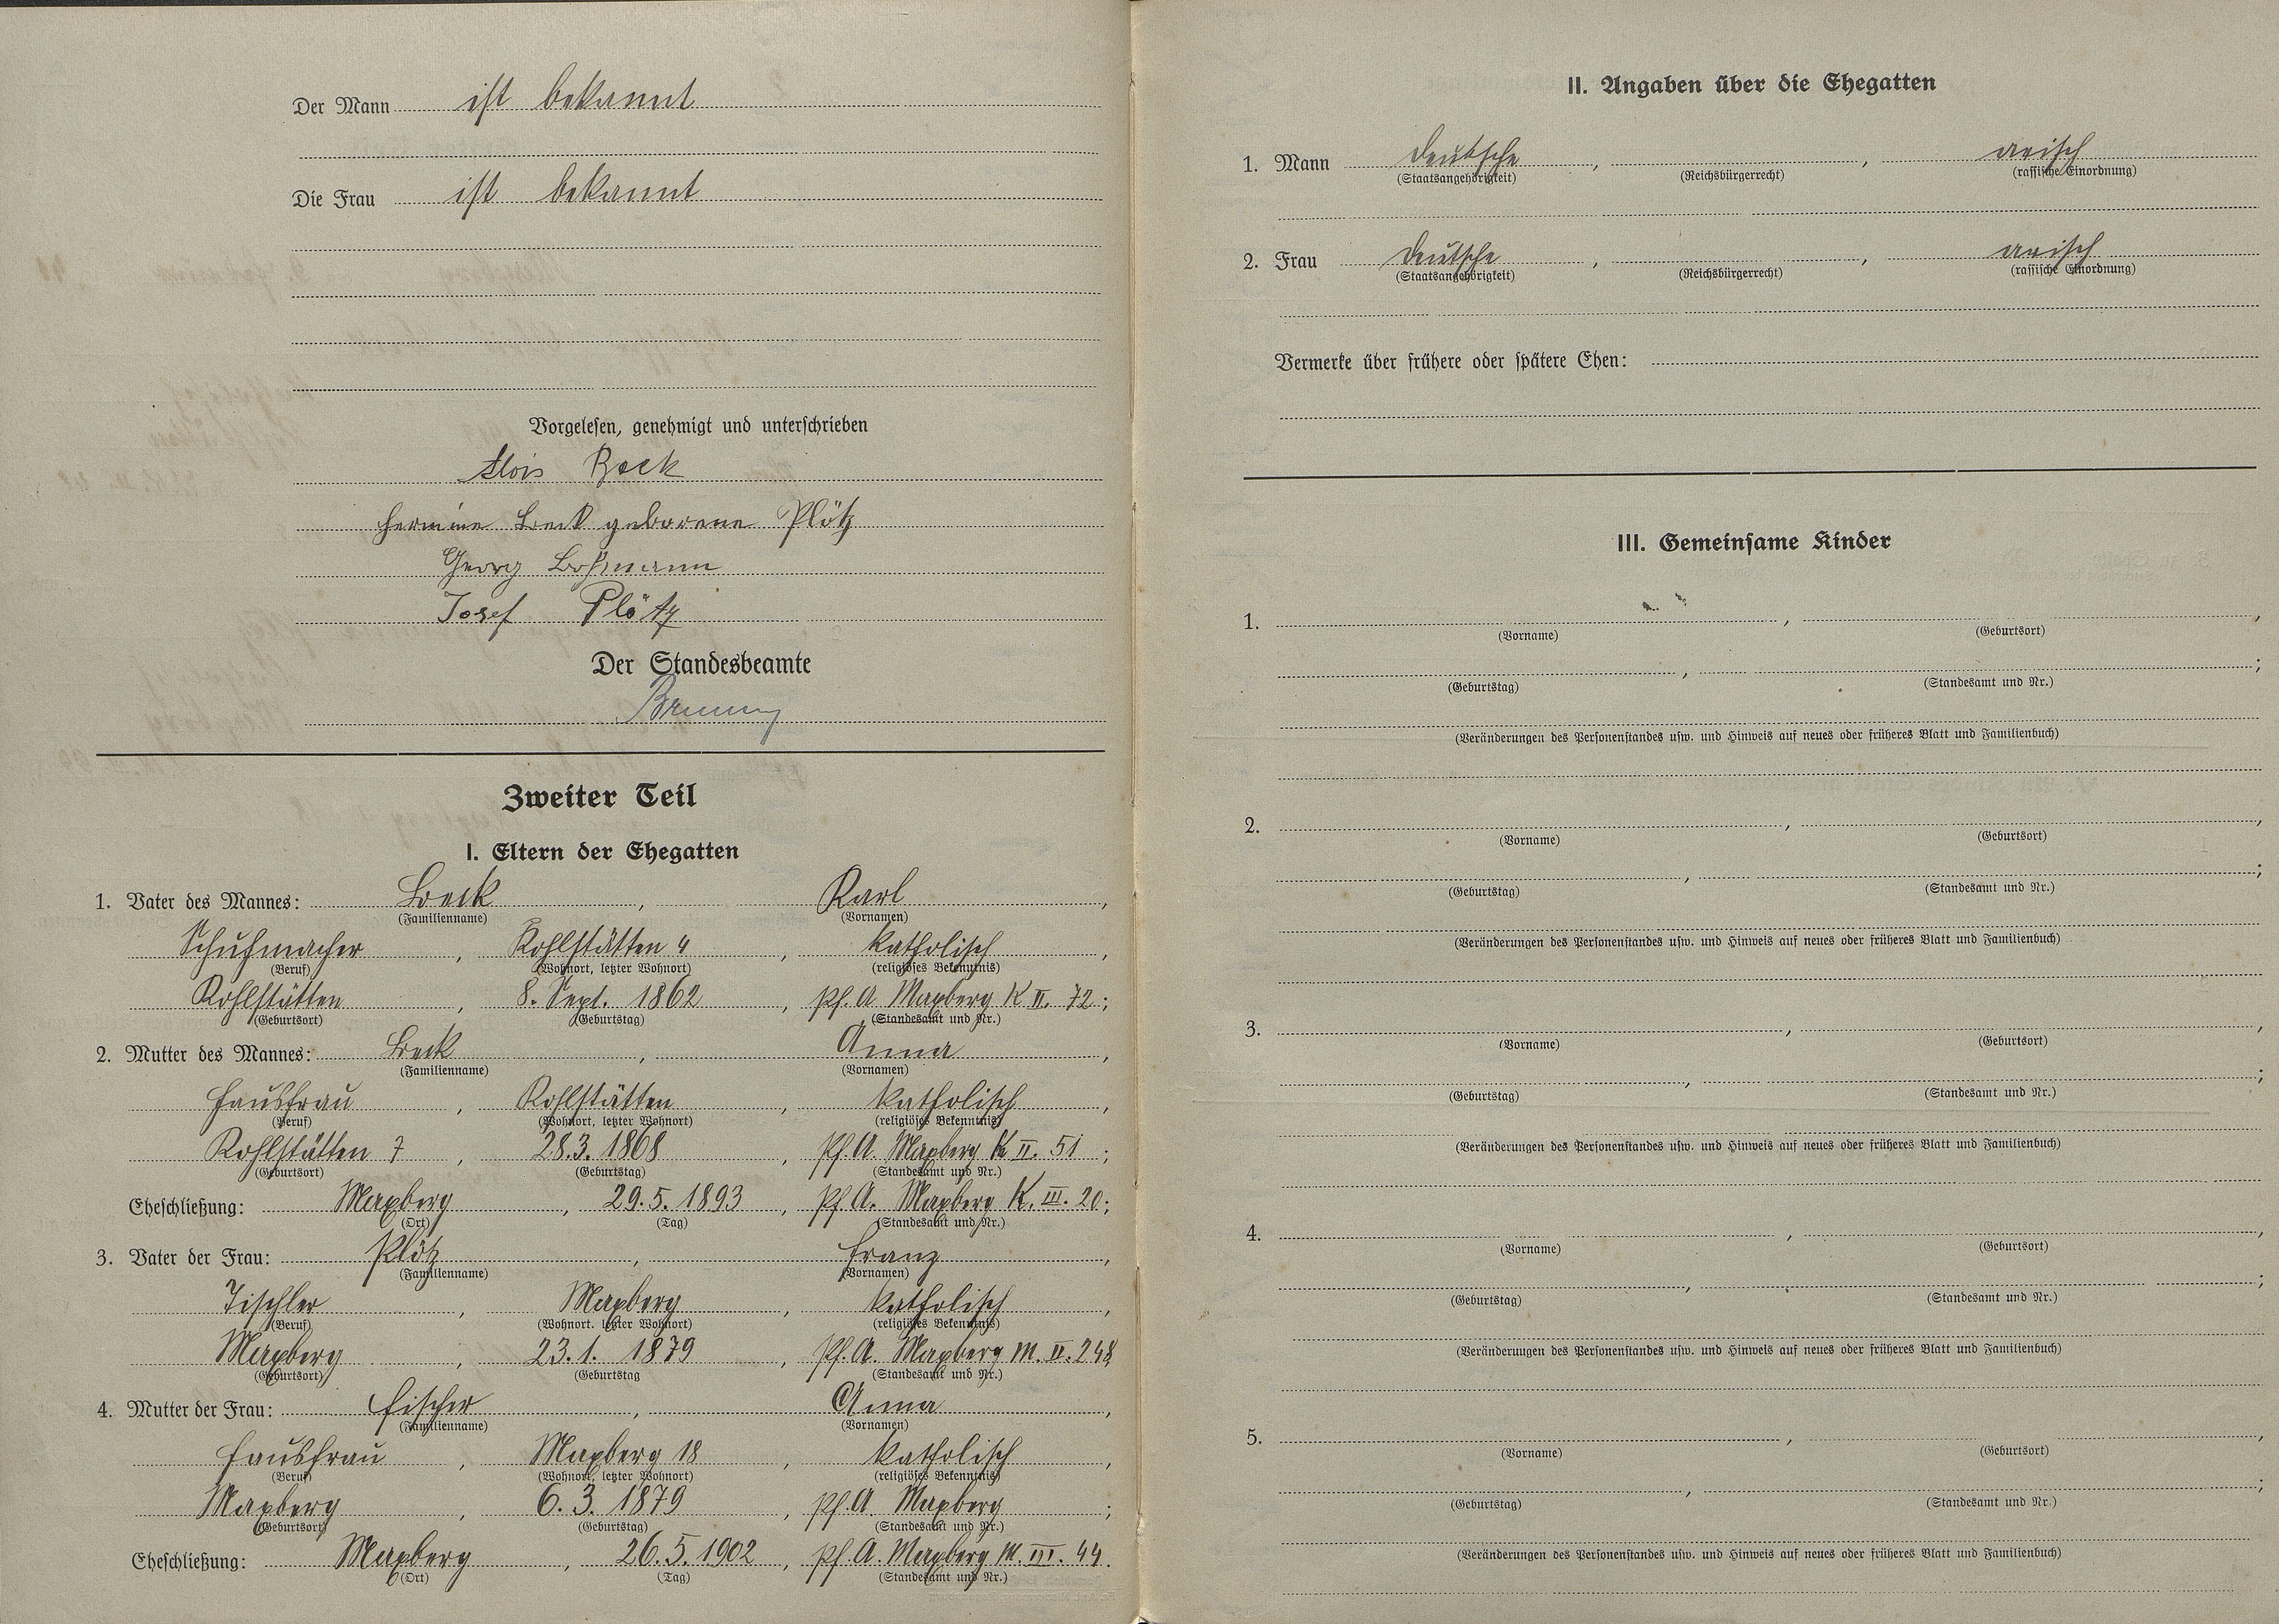 Der Mann ist bekannt
Die Frau ist bekannt
Vorgelesen, genehmigt und unterschrieben
Alois Beck
Hermine Beck geborene Plötz
Georg
Josef Plötz
Der Standesbeamte
Zweiter Teil
I. Eltern der Ehegatten
1. Vater des Mannes: Beck, Karl,
(Familienname) (Vornamen)
Schuhmacher, Kohlstätten 4, katholisch,
(Beruf) (Wohnort, letzter Wohnort) (religiöses Bekenntnis)
Kohlstätten, 8. Sept. 1862, Pf. A. Maxberg K II. 72;
(Geburtsort) (Geburtstag) (Standesamt und Nr.)
2. Mutter des Mannes: Beck, Anna,
(Familienname) (Vornamen)
Hausfrau, Kohlstätten, katholisch,
(Beruf) (Wohnort, letzter Wohnort) (religiöses Bekenntnis)
Kohlstätten 7, 28.3.1868, Pf. A. Maxberg K II. 51;
(Geburtsort) (Geburtstag) (Standesamt und Nr.)
Eheschließung: Maxberg, 29.5.1893, Pf. A. Maxberg K. III. 20;
(Ort) (Tag) (Standesamt und Nr.)
3. Vater der Frau: Plötz, Franz,
(Familienname) (Vornamen)
Tischler, Maxberg, katholisch,
(Beruf) (Wohnort. letzter Wohnort) (religiöses Bekenntnis)
Maxberg, 23.1.1879, Pf. A. Maxberg M. II. 248
(Geburtsort) (Geburtstag (Standesamt und Nr.)
4. Mutter der Frau: Fischer, Anna,
(Familienname) (Vornamen)
Hausfrau, Maxberg 18, katholisch,
(Beruf) (Wohnort, letzter Wohnort) (religiöses Bekenntnis)
Maxberg, 6.3.1879, Pf. A. Maxberg;
(Geburtsort) (Geburtstag) (Standesamt und Nr.)
Eheschließung: Maxberg, 26.5.1902, Pf. A. Maxberg M. III. 44.
(Ort) (Tag) (Standesamt und Nr.)
II. Angaben über die Ehegatten
1. Mann Deutsche, , arisch
(Staatsangehörigkeit) (Reichsbürgerrecht) (rassische Einordnung)
2. Frau Deutsche, , arisch
(Staatsangehörigkeit) (Reichsbürgerrecht) (rassische Einordnung)
Vermerke über frühere oder spätere Ehen:
III. Gemeinsame Kinder
1. , ,
(Vorname) (Geburtsort)
, ;
(Geburtstag) (Standesamt und Nr.)
(Veränderungen des Personenstandes usw. und Hinweis auf neues oder früheres Blatt und Familienbuch)
2. , ,
(Vorname) (Geburtsort)
, ;
(Geburtstag) (Standesamt und Nr.)
(Veränderungen des Personenstandes usw. und Hinweis auf neues oder früheres Blatt und Familienbuch)
3. , ,
(Vorname) (Geburtsort)
, ;
(Geburtstag) (Standesamt und Nr.)
(Veränderungen des Personenstandes usw. und Hinweis auf neues oder früheres Blatt und Familienbuch)
4. , ,
(Vorname) (Geburtsort)
, ;
(Geburtstag) (Standesamt und Nr.)
(Veränderungen des Personenstandes usw. und Hinweis auf neues oder früheres Blatt und Familienbuch)
5. , ,
(Vorname) (Geburtsort)
, ;
(Geburtstag) (Standesamt und Nr.)
(Veränderungen des Personenstandes usw. und Hinweis auf neues oder früheres Blatt und Familienbuch)